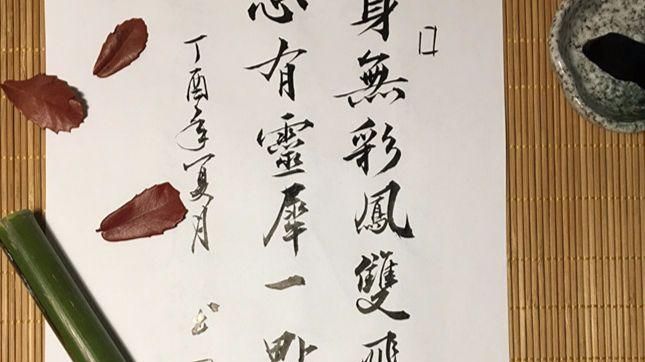 身無彩鳳雙飛
心有靈犀一點
丁酉年夏月